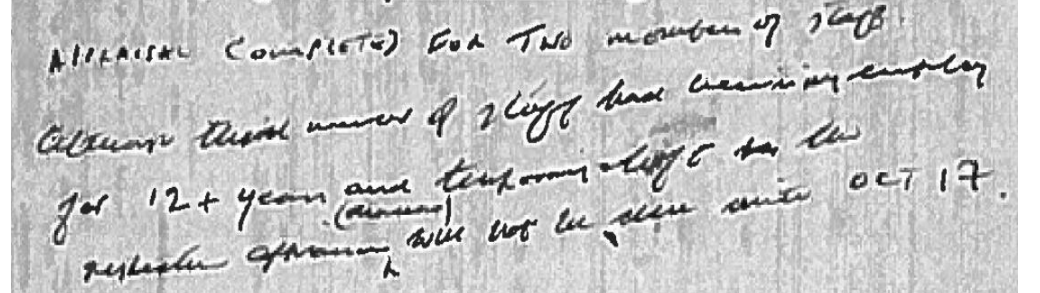 APPRAISAL COMPLETED FOR TWO members of staff.
Although third member of staff had been in my employ
for 12+ years and temporary staff
(annual)
appraisal will not be done until OCT 17.